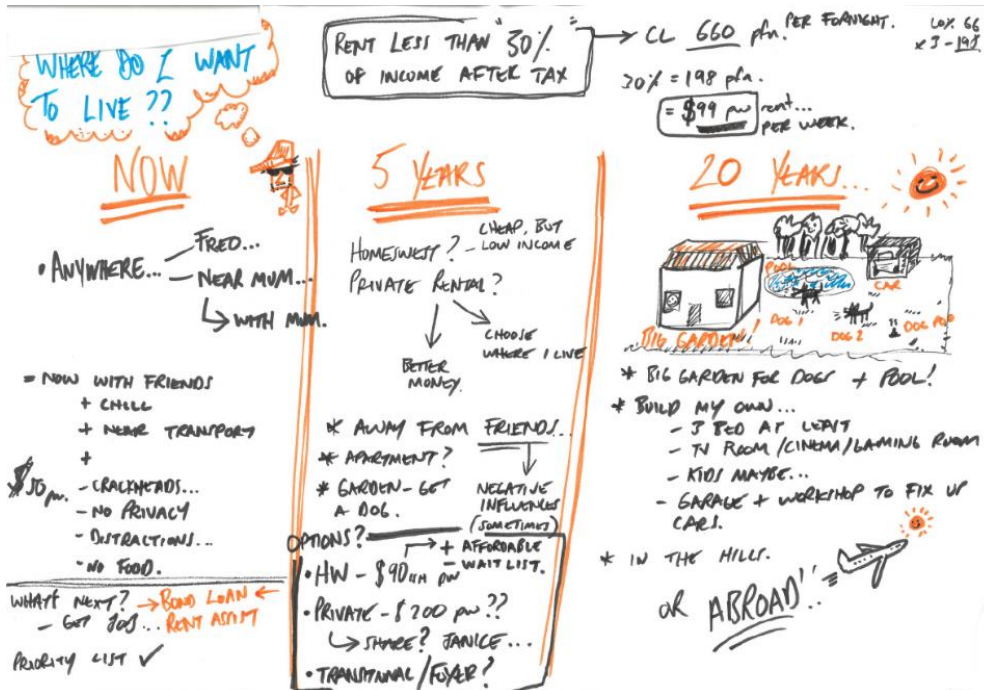 WHERE DO I WANT
TO LIVE??
RENT LESS THAN "30%"
OF INCOME AFTER TAX
CL 660 pfn. PER FORNIGHT.
30% = 198 pfn.
= $99 pw rent...
PER WEEK.
10% 66
x 3 - 198
NOW
• ANYWHERE...
FRED...
NEAR MUM...
WITH MUM.
= NOW WITH FRIENDS
+ CHILL
+ NEAR TRANSPORT
+
$50 pw.
- CRACKHEADS...
- NO PRIVACY
- DISTRACTIONS...
- NO FOOD.
WHAT'S NEXT? → BOND LOAN ←
- GET JOB... RENT ASSIST
PRIORITY LIST ✓
5 YEARS
HOMESWEST? - CHEAP, BUT
LOW INCOME
PRIVATE RENTAL?
BETTER
MONEY.
CHOOSE
WHERE I LIVE
* AWAY FROM FRIENDS...
* APARTMENT?
* GARDEN - GET
A DOG.
NEGATIVE
INFLUENCES
(SOMETIMES)
OPTIONS?
• HW - $90 pw
+ AFFORDABLE
- WAIT LIST.
• PRIVATE - $200 pw??
SHARE? JANICE...
• TRANSITIONAL/FOYER?
20 YEARS...
POOL
CAR
DOG 1
DOG 2
DOG POO
BIG GARDEN!
* BIG GARDEN FOR DOGS + POOL!
* BUILD MY OWN...
- 3 BED AT LEAST
- TV ROOM/CINEMA/GAMING ROOM
- KIDS MAYBE...
- GARAGE + WORKSHOP TO FIX UP
CARS.
* IN THE HILLS.
OR ABROAD!!